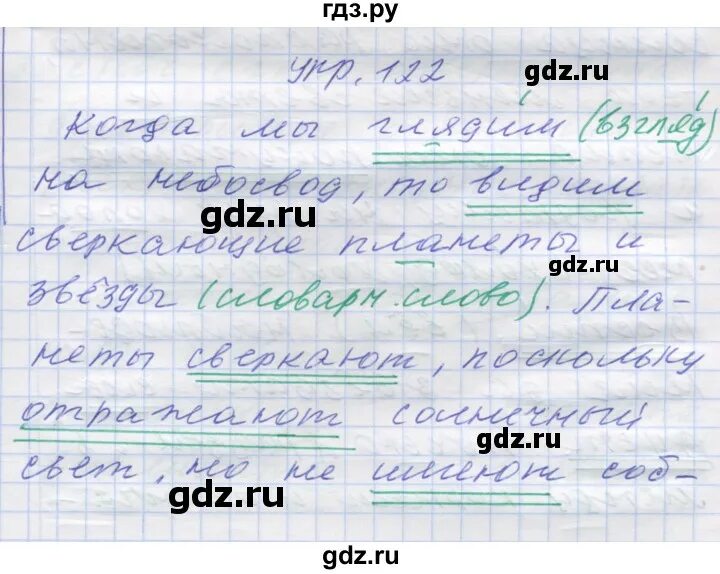 гдз.ру
упр. 122
gdz.ru
Когда мы глядим (взгляд)
на небосвод, то видим
gdz.ru
сверкающие планеты и
gdz.ru
звёзды (словарн. слово). Пла-
неты сверкают, поскольку
отражают солнечный
gdz.ru
свет, но не имеют соб-
gdz.ru
gdz.ru